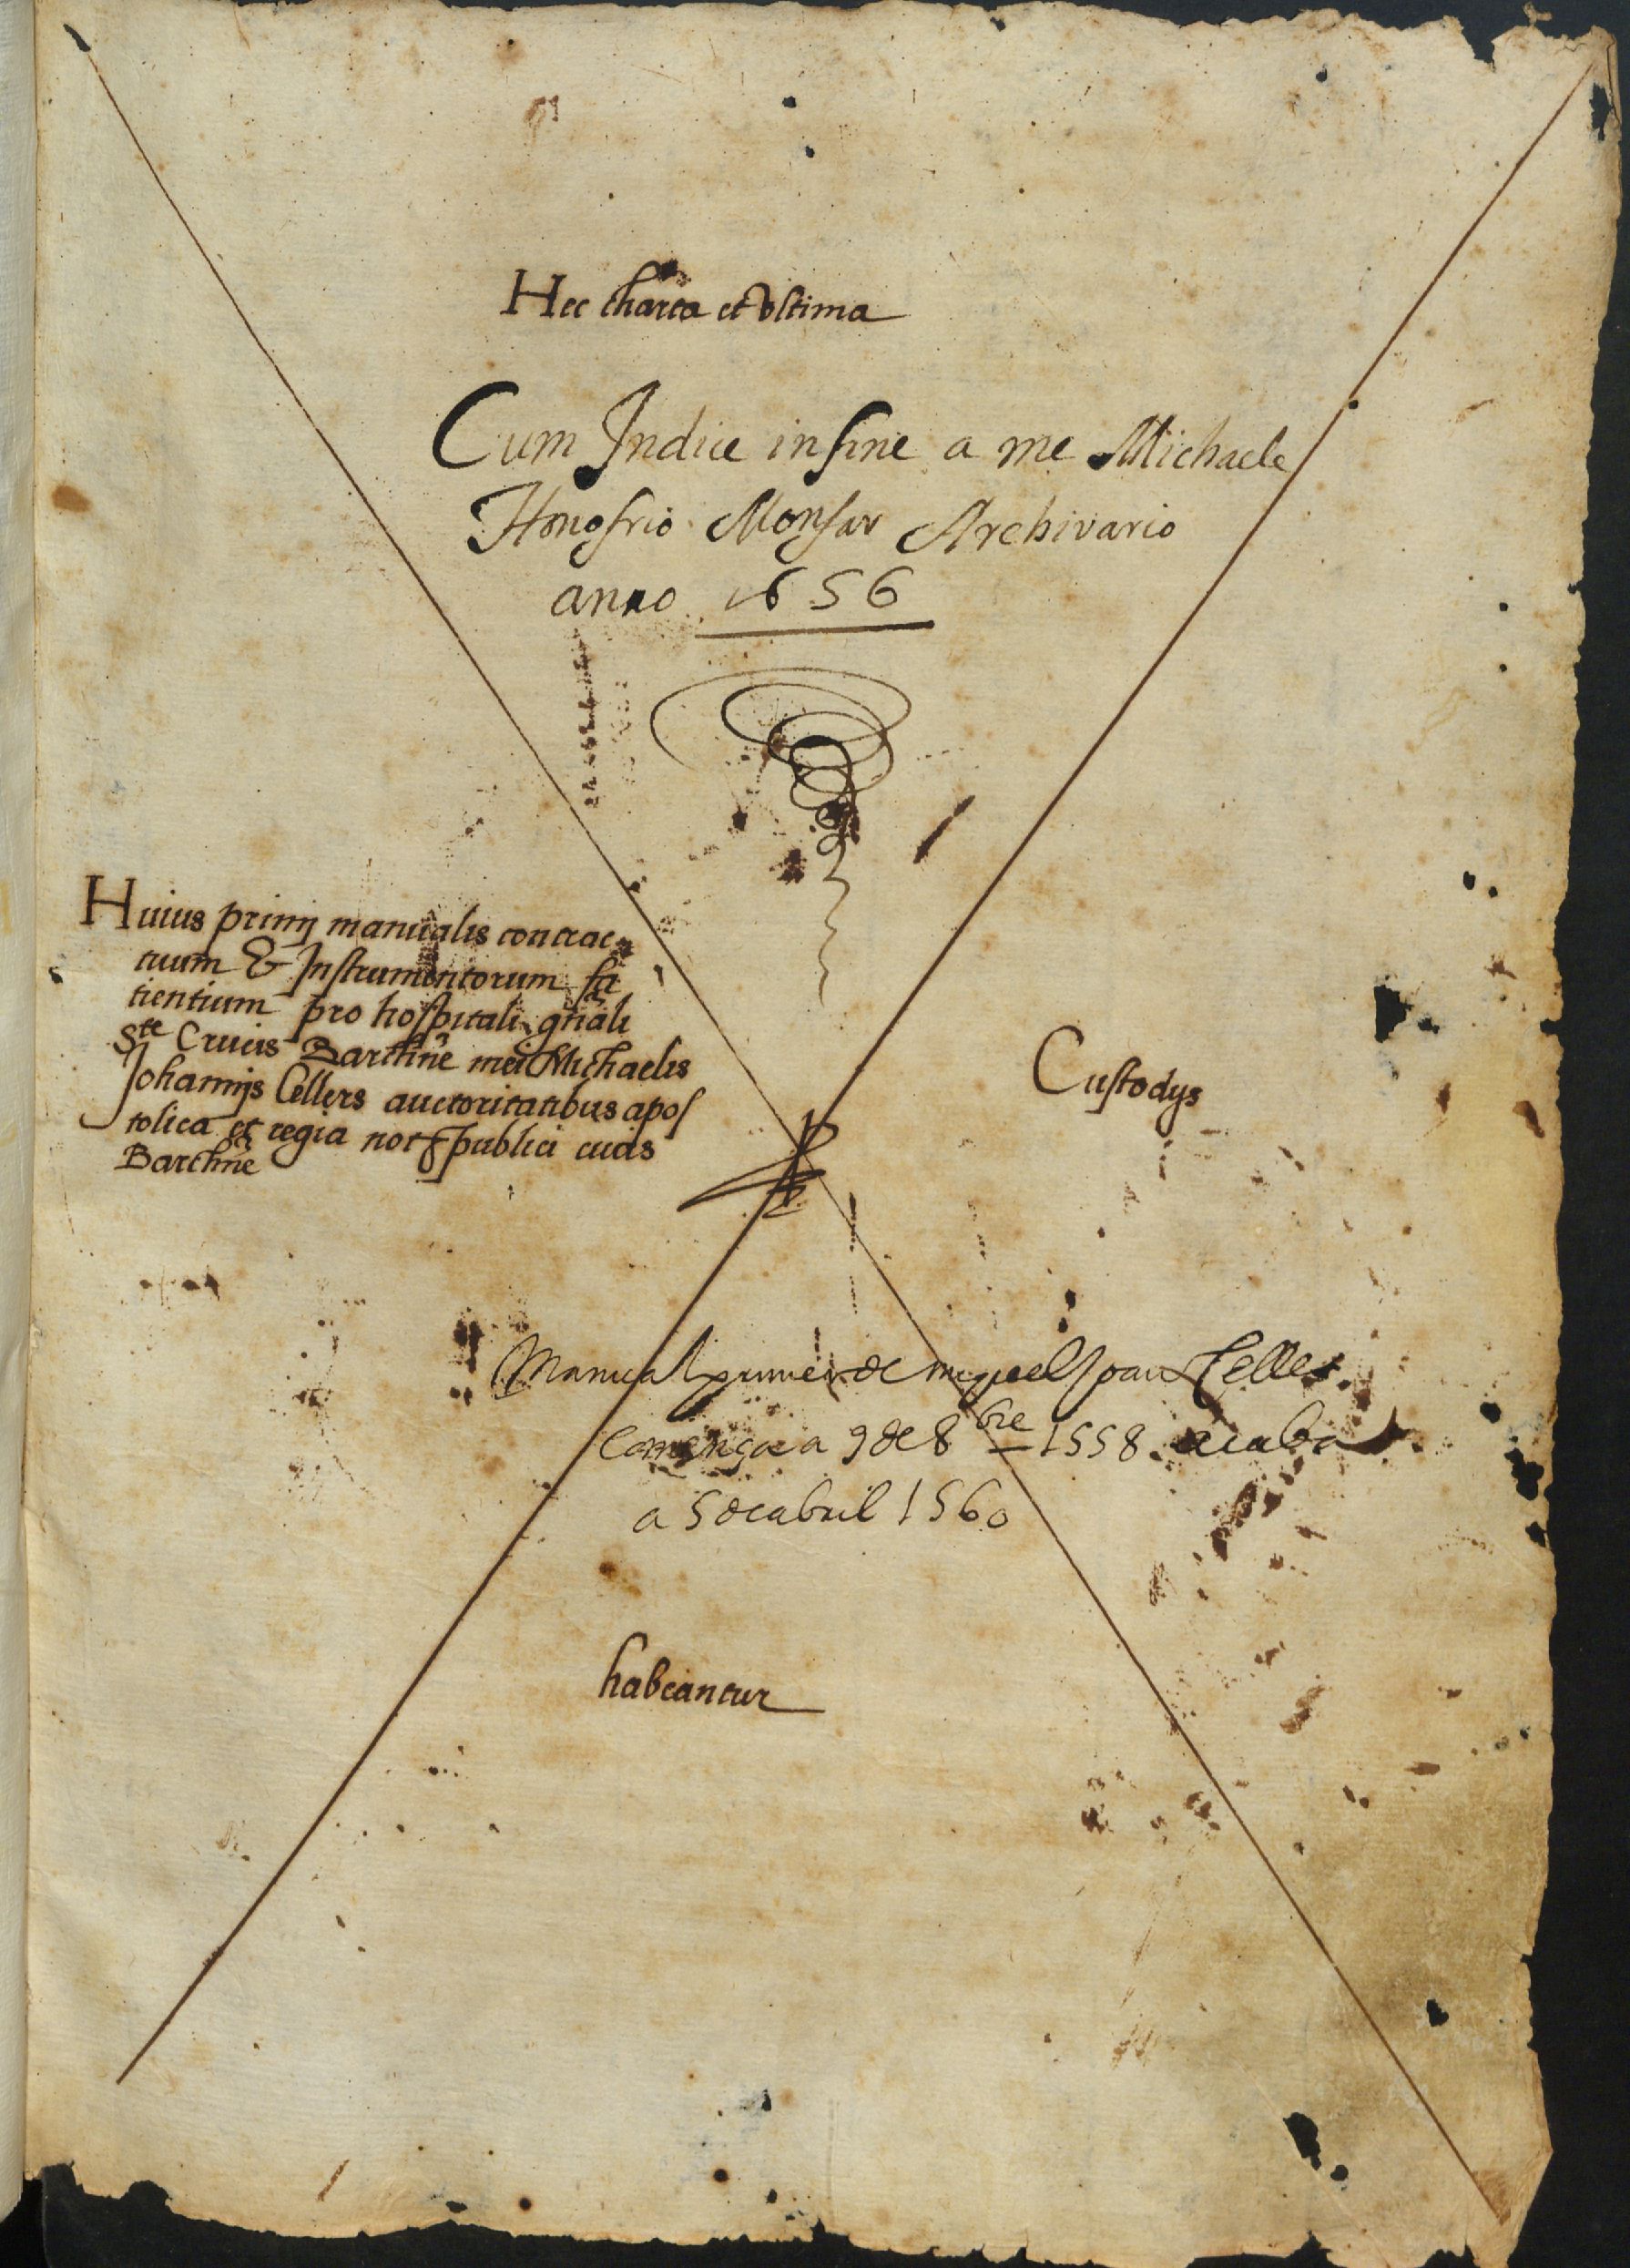 Hec charta et vltima
Cum Indice in fine a me Michaele
Honofrio Monfar Archivario
anno 1656
Huius primj manualis contrac-
tuum & Instrumentorum fa
tientium pro hospitali gñali
Ste Crucis Barchñe mei Michaelis
Johannjs Cellers auctoritatibus apos
tolica et regia not publici ciuis
Barchñe
Custodys
Manual primer de miquel Joan Celles
Comença a 9 de 8bre 1558 acaba
a 5 de abril 1560
habeantur